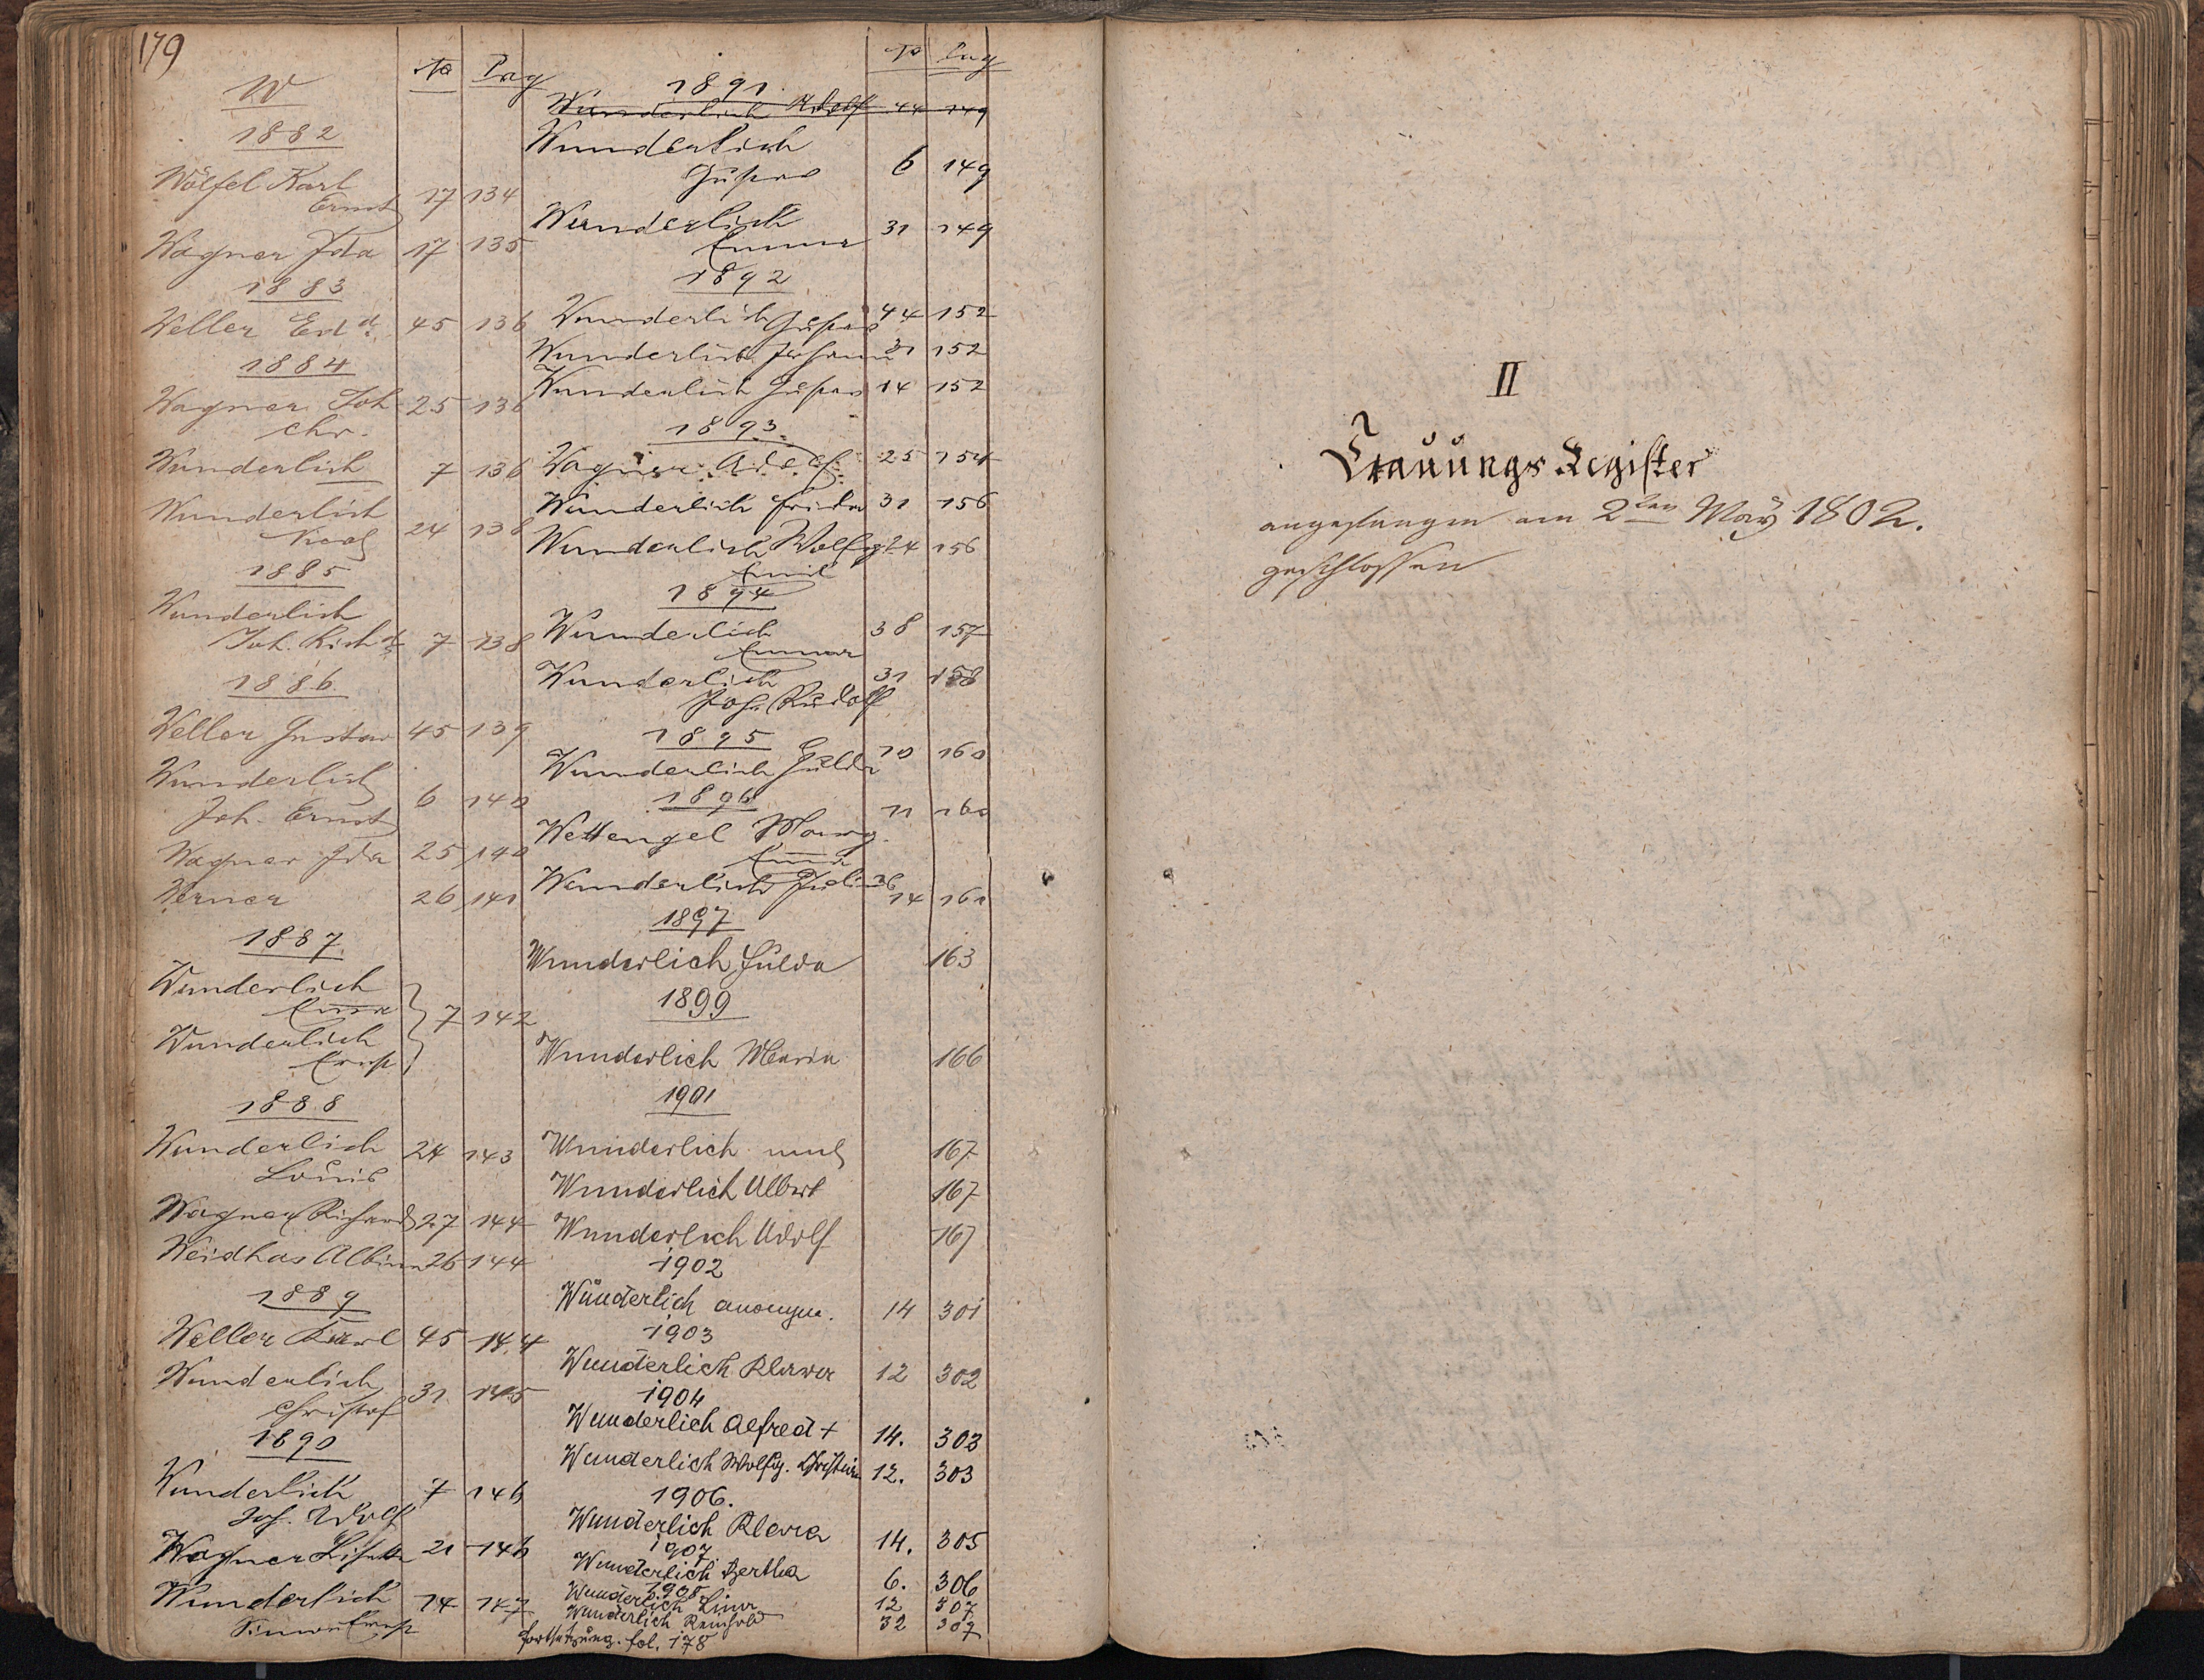 179
No Pag
W
1882
Wölfel Karl
Ernst 17 134
Wagner Ida 17 135
1883
Weller Ed 45 136
1884
Wagner Joh 25 136
Chr.
Wunderlich 7 136
Wunderlich
24 138
1885
Wunderlich
Joh. Rich 7 138
1886
Weller Gustav 45 139
Wunderlich
Joh. Ernst 6 140
Wagner Ida 25 140
Werner 26 141
1887
Wunderlich
Emma
7 142
Wunderlich
Ernst
1888
Wunderlich 24 143
Louis
Wagner Richard 27 144
Weidhas Albin 26 144
1889
Weller Karl 45 144
Wunderlich 31 145
Christof
1890
Wunderlich 7 146
Joh. Adolf
Wagner 21 146
Wunderlich 14 147
Simon Ernst
No Pag
1891
Wunderlich Adolf 44 149
Wunderlich
Gustav 6 149
Wunderlich 31 149
Emma
1892
Wunderlich Gustav 44 152
Wunderlich Johann 31 152
Wunderlich Gustav 14 152
1893.
Wagner Adolf 25 154
Wunderlich Frida 31 156
Wunderlich Wolfg 24 156
Emil
1894
Wunderlich 38 157
Emma
Wunderlich 31 158
Joh. Rudolf
1895
Wunderlich Hulda 10 160
1896
Wettengel Marg. 11 160
Emma
Wunderlich 14 161
1897
Wunderlich Hulda 163
1899
Wunderlich Maria 166
1901
Wunderlich 167
Wunderlich Albert 167
Wunderlich Adolf 167
1902
Wunderlich anonym. 14 301
1903
Wunderlich Klara 12 302
1904
Wunderlich Alfred + 14. 303
Wunderlich Wolfg. Christian 12. 303
1906.
Wunderlich Klara 14. 305
1907
Wunderlich Bertha 6. 306
1908
Wunderlich Lina 12 307
Wunderlich Reinhold 32 307
Fortsetzung. fol. 178
II
Trauungs Register
angefangen am 2ten May 1802.
geschlossen